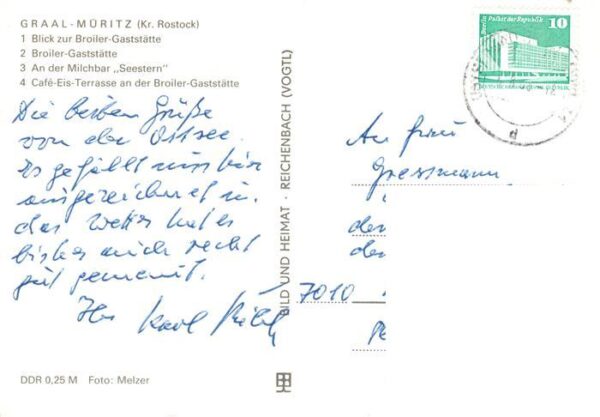 GRAAL-MÜRITZ (Kr. Rostock)
1 Blick zur Broiler-Gaststätte
2 Broiler-Gaststätte
3 An der Milchbar „Seestern"
4 Café-Eis-Terrasse an der Broiler-Gaststätte
Die besten Grüße
von der Ostsee.
Es gefällt uns hier
ausgezeichnet u.
das Wetter hat es
bisher auch recht
gut gemeint.
Ihr Karl
DDR 0,25 M Foto: Melzer
BILD UND HEIMAT · REICHENBACH (VOGTL)
Berlin, Palast der Republik
10
An Frau
Gressmann
7010